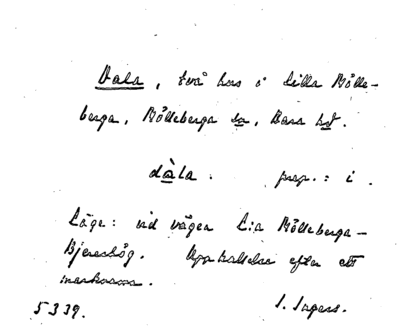 Dala, två hus i Lilla Mölle-
berga, Mölleberga sn, Bara hd.
dàla. prep.: i.
Läge: vid vägen L:a Mölleberga-
Bjereshög. Uppkallelse efter ett
marknamn.
5339. I. Ingers.